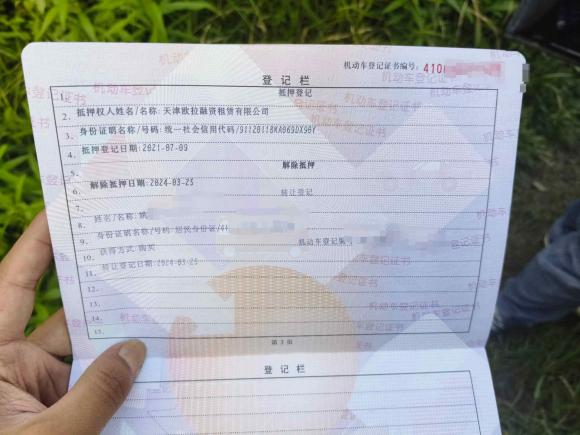 机动车登记证书编号: 410
登记栏
1. 抵押登记
2. 抵押权人姓名/名称:天津欧拉融资租赁有限公司
3. 身份证明名称/号码:统一社会信用代码/91120118KA069DX96Y
4. 抵押登记日期:2021-07-09
5. 解除抵押
6. 解除抵押日期:2024-03-25
7. 转让登记
8. 姓名/名称:姚
9. 身份证明名称/号码:居民身份证/41 机动车登记
10. 获得方式:购买
11. 转让登记日期:2024-03-25
12.
13.
14.
15.
第 3 页
登记栏
机动车登记证书